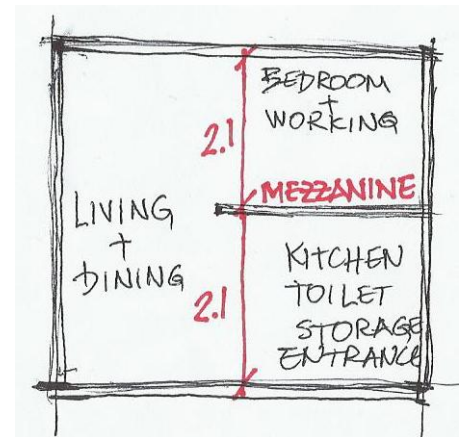 BEDROOM
+
WORKING
2.1
MEZZANINE
LIVING
+
DINING
2.1
KITCHEN
TOILET
STORAGE
ENTRANCE